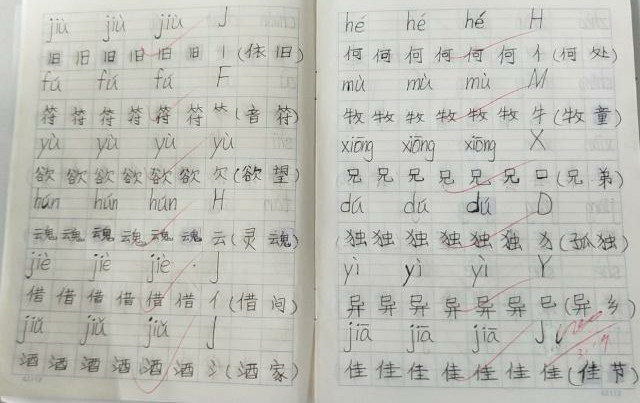 jiù jiù jiù J
旧 旧 旧 旧 旧 旧 丨 (依 旧)
fú fú fú F
符 符 符 符 符 符 ⺮ (音 符)
yù yù yù yù
欲 欲 欲 欲 欲 欲 欠 (欲 望)
hún hún hún H
魂 魂 魂 魂 魂 魂 云 (灵 魂)
jiè jiè jiè J
借 借 借 借 借 借 亻 (借 问)
jiǔ jiǔ jiǔ J
酒 酒 酒 酒 酒 酒 氵 (酒 家)
hé hé hé H
何 何 何 何 何 何 亻 (何 处)
mù mù mù M
牧 牧 牧 牧 牧 牧 牜 (牧 童)
xiōng xiōng xiōng X
兄 兄 兄 兄 兄 兄 口 (兄 弟)
dú dú dú D
独 独 独 独 独 独 犭 (孤 独)
yì yì yì Y
异 异 异 异 异 异 巳 (异 乡)
jiā jiā jiā J
佳 佳 佳 佳 佳 佳 佳 (佳 节)